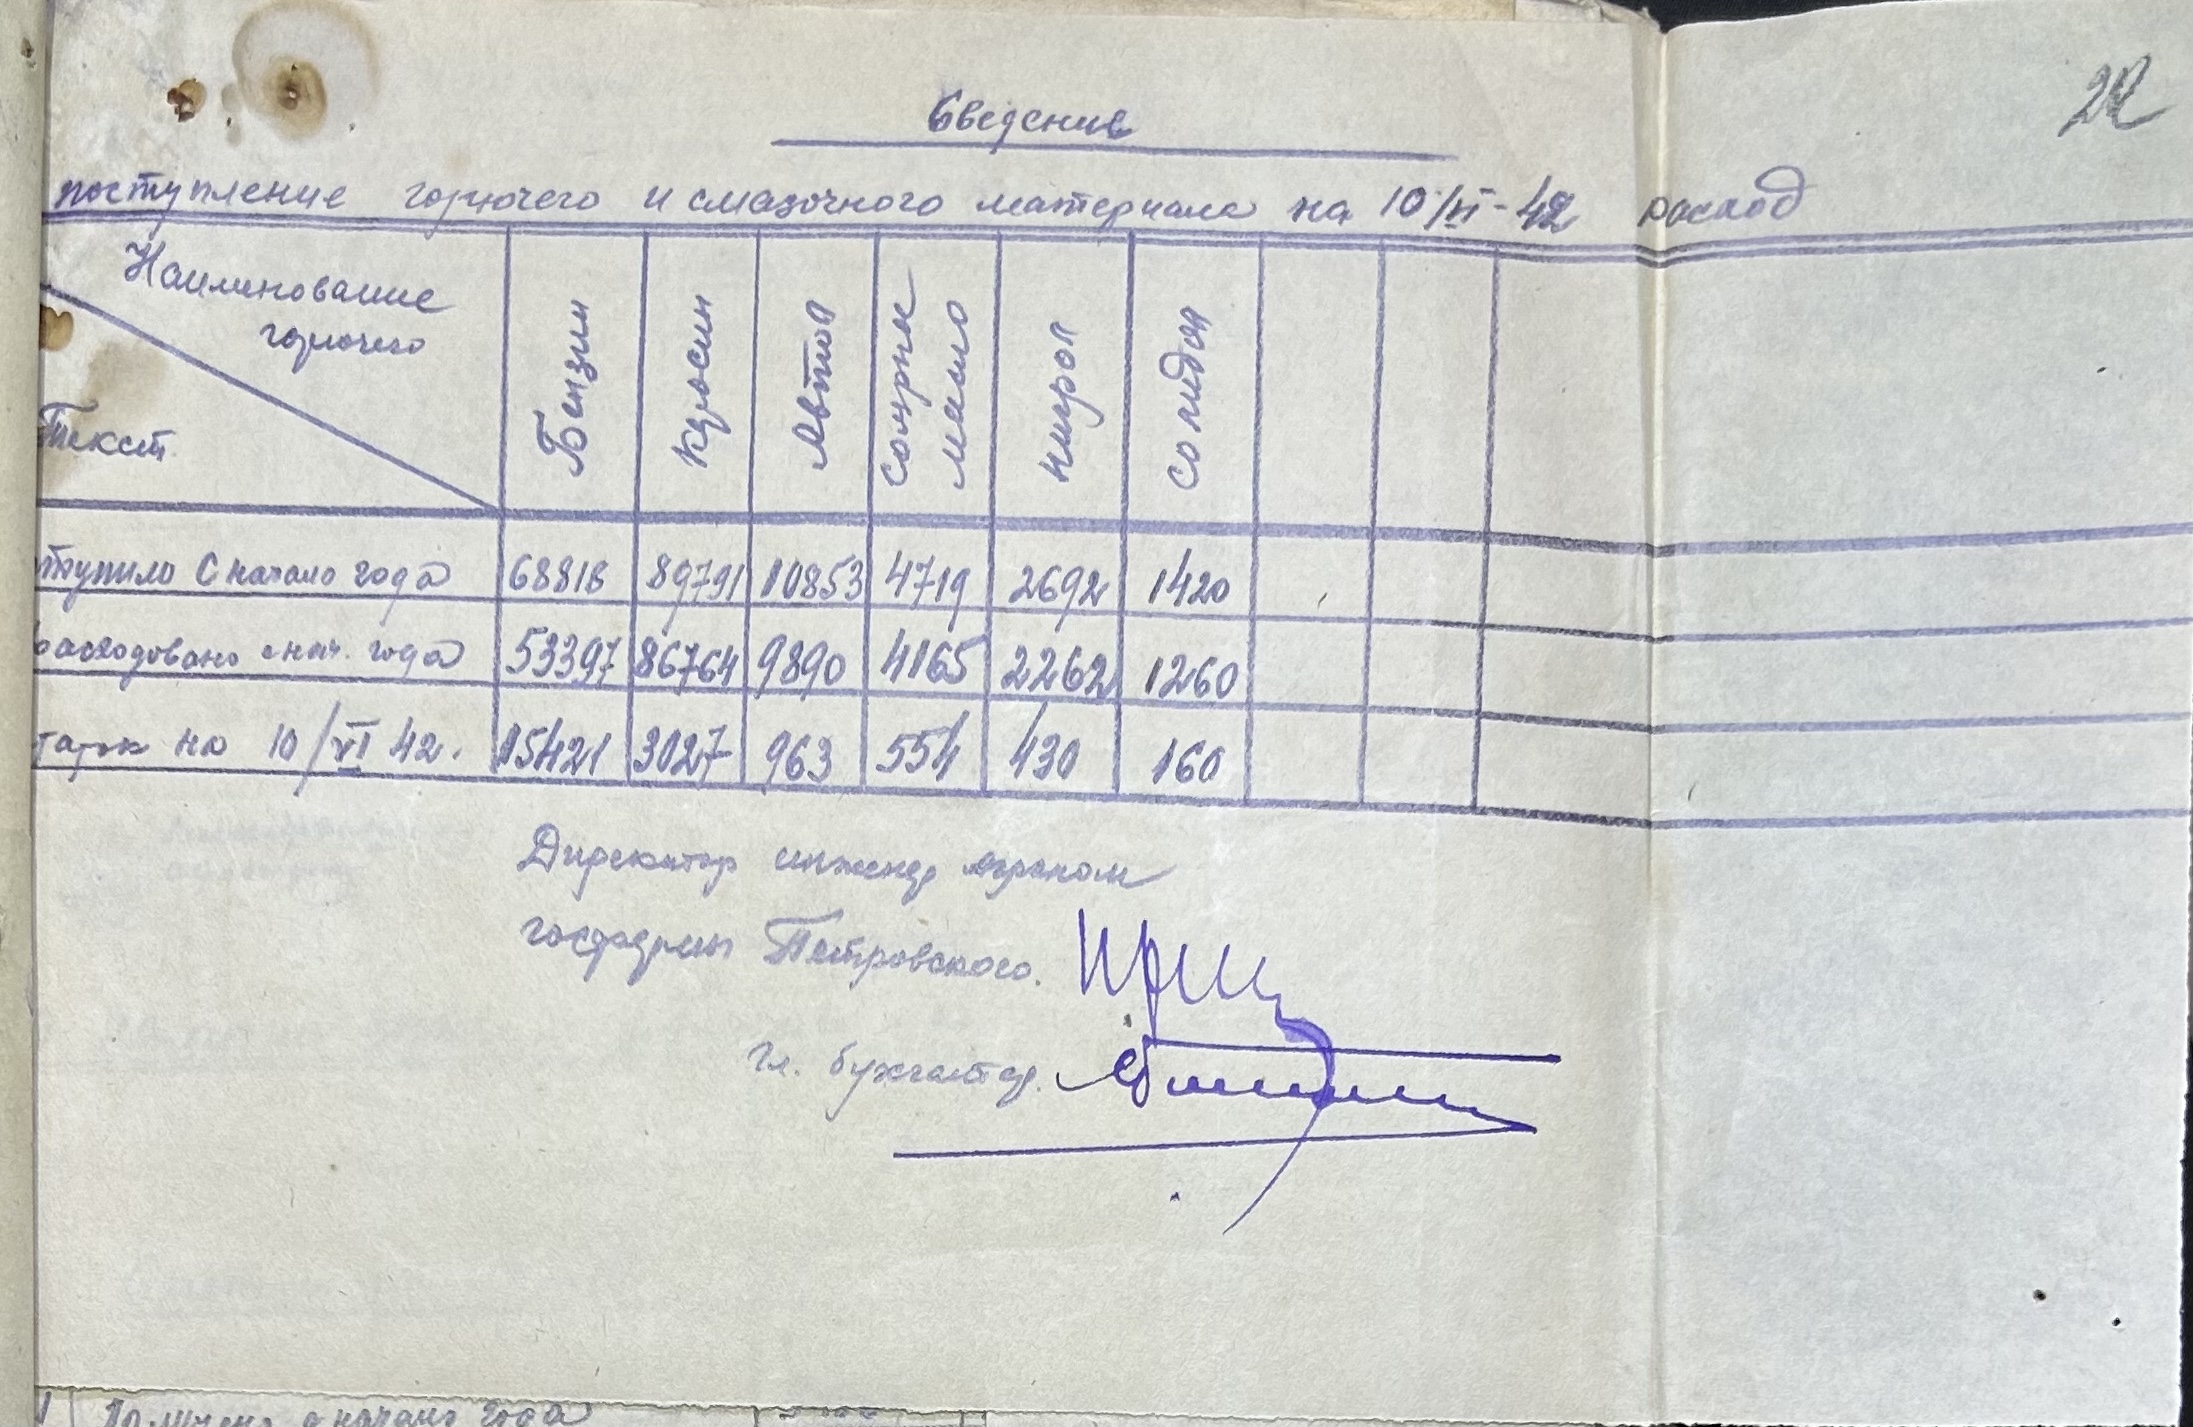 22
Сведение
поступление горючего и смазочного материала на 10/VI-42 расход
Наименование
горючего
Текст
Бензин
Керосин
Автол
солярное
масло
нигрол
солидол
ступило С начало года 68818 89791 10853 4719 2692 1420
расходовано с нач. года 53397 86764 9890 4165 2262 1260
таток на 10/VI 42. 15421 3027 963 554 430 160
Директор инженер агроном
госфермы Петровского.
Гл. бухгалтер.
Получено с начало года